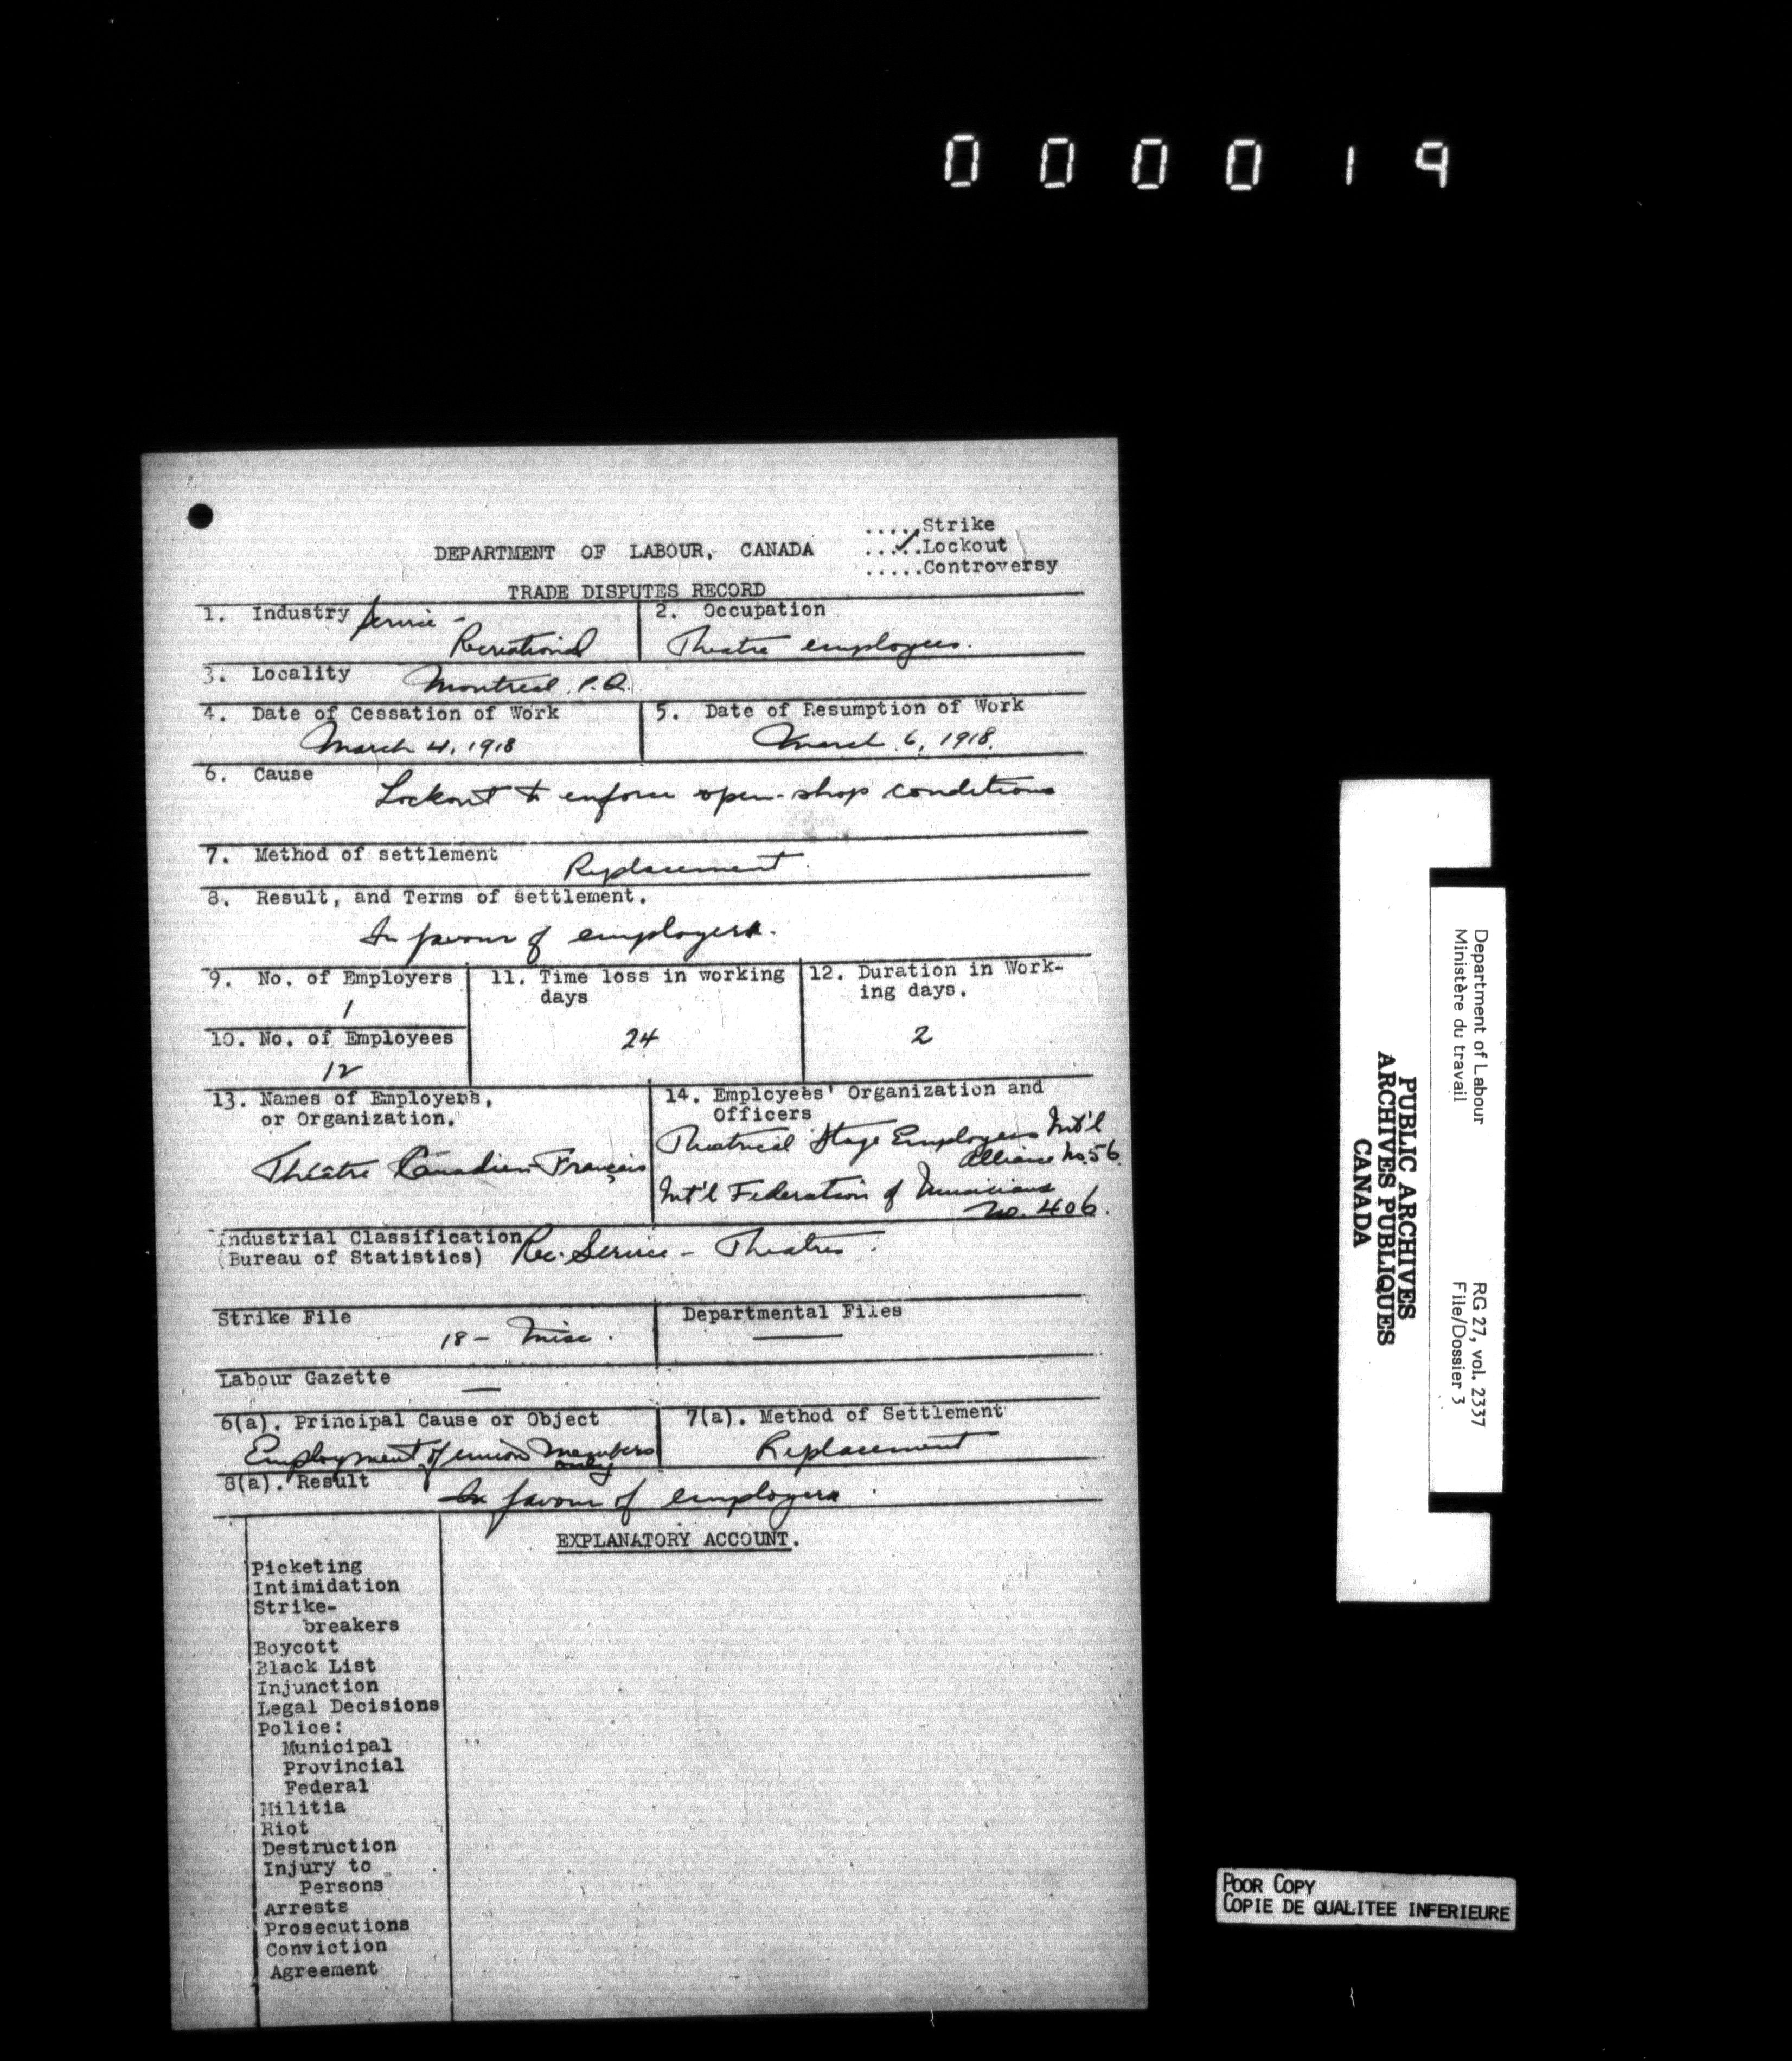 000019
.....Strike
DEPARTMENT OF LABOUR, CANADA
..✓..Lockout
.....Controversy
TRADE DISPUTES RECORD
1. Industry Service -
Recreational
2. Occupation
Theatre employees.
3. Locality Montreal, P.Q.
4. Date of Cessation of Work
March 4, 1918
5. Date of Resumption of Work
March 6, 1918.
6. Cause
Lockout to enforce open-shop conditions
7. Method of settlement Replacement.
8. Result, and Terms of settlement.
In favour of employers.
9. No. of Employers
1
10. No. of Employees
12
11. Time loss in working
days
24
12. Duration in Work-
ing days.
2
13. Names of Employers,
or Organization.
Théâtre Canadien-Français
14. Employees' Organization and
Officers
Theatrical Stage Employees Int'l
Alliance No. 56
Int'l Federation of Musicians
No. 406.
Industrial Classification
(Bureau of Statistics) Rec. Service - Theatres.
Strike File
18- Misc.
Departmental Files
—
Labour Gazette
—
6(a). Principal Cause or Object
Employment of union members
only
7(a). Method of Settlement
Replacement
8(a). Result In favour of employers.
EXPLANATORY ACCOUNT.
Picketing
Intimidation
Strike-
breakers
Boycott
Black List
Injunction
Legal Decisions
Police:
Municipal
Provincial
Federal
Militia
Riot
Destruction
Injury to
Persons
Arrests
Prosecutions
Conviction
Agreement
Department of Labour
Ministère du travail
RG 27, vol. 2337
File/Dossier 3
PUBLIC ARCHIVES
ARCHIVES PUBLIQUES
CANADA
POOR COPY
COPIE DE QUALITEE INFERIEURE